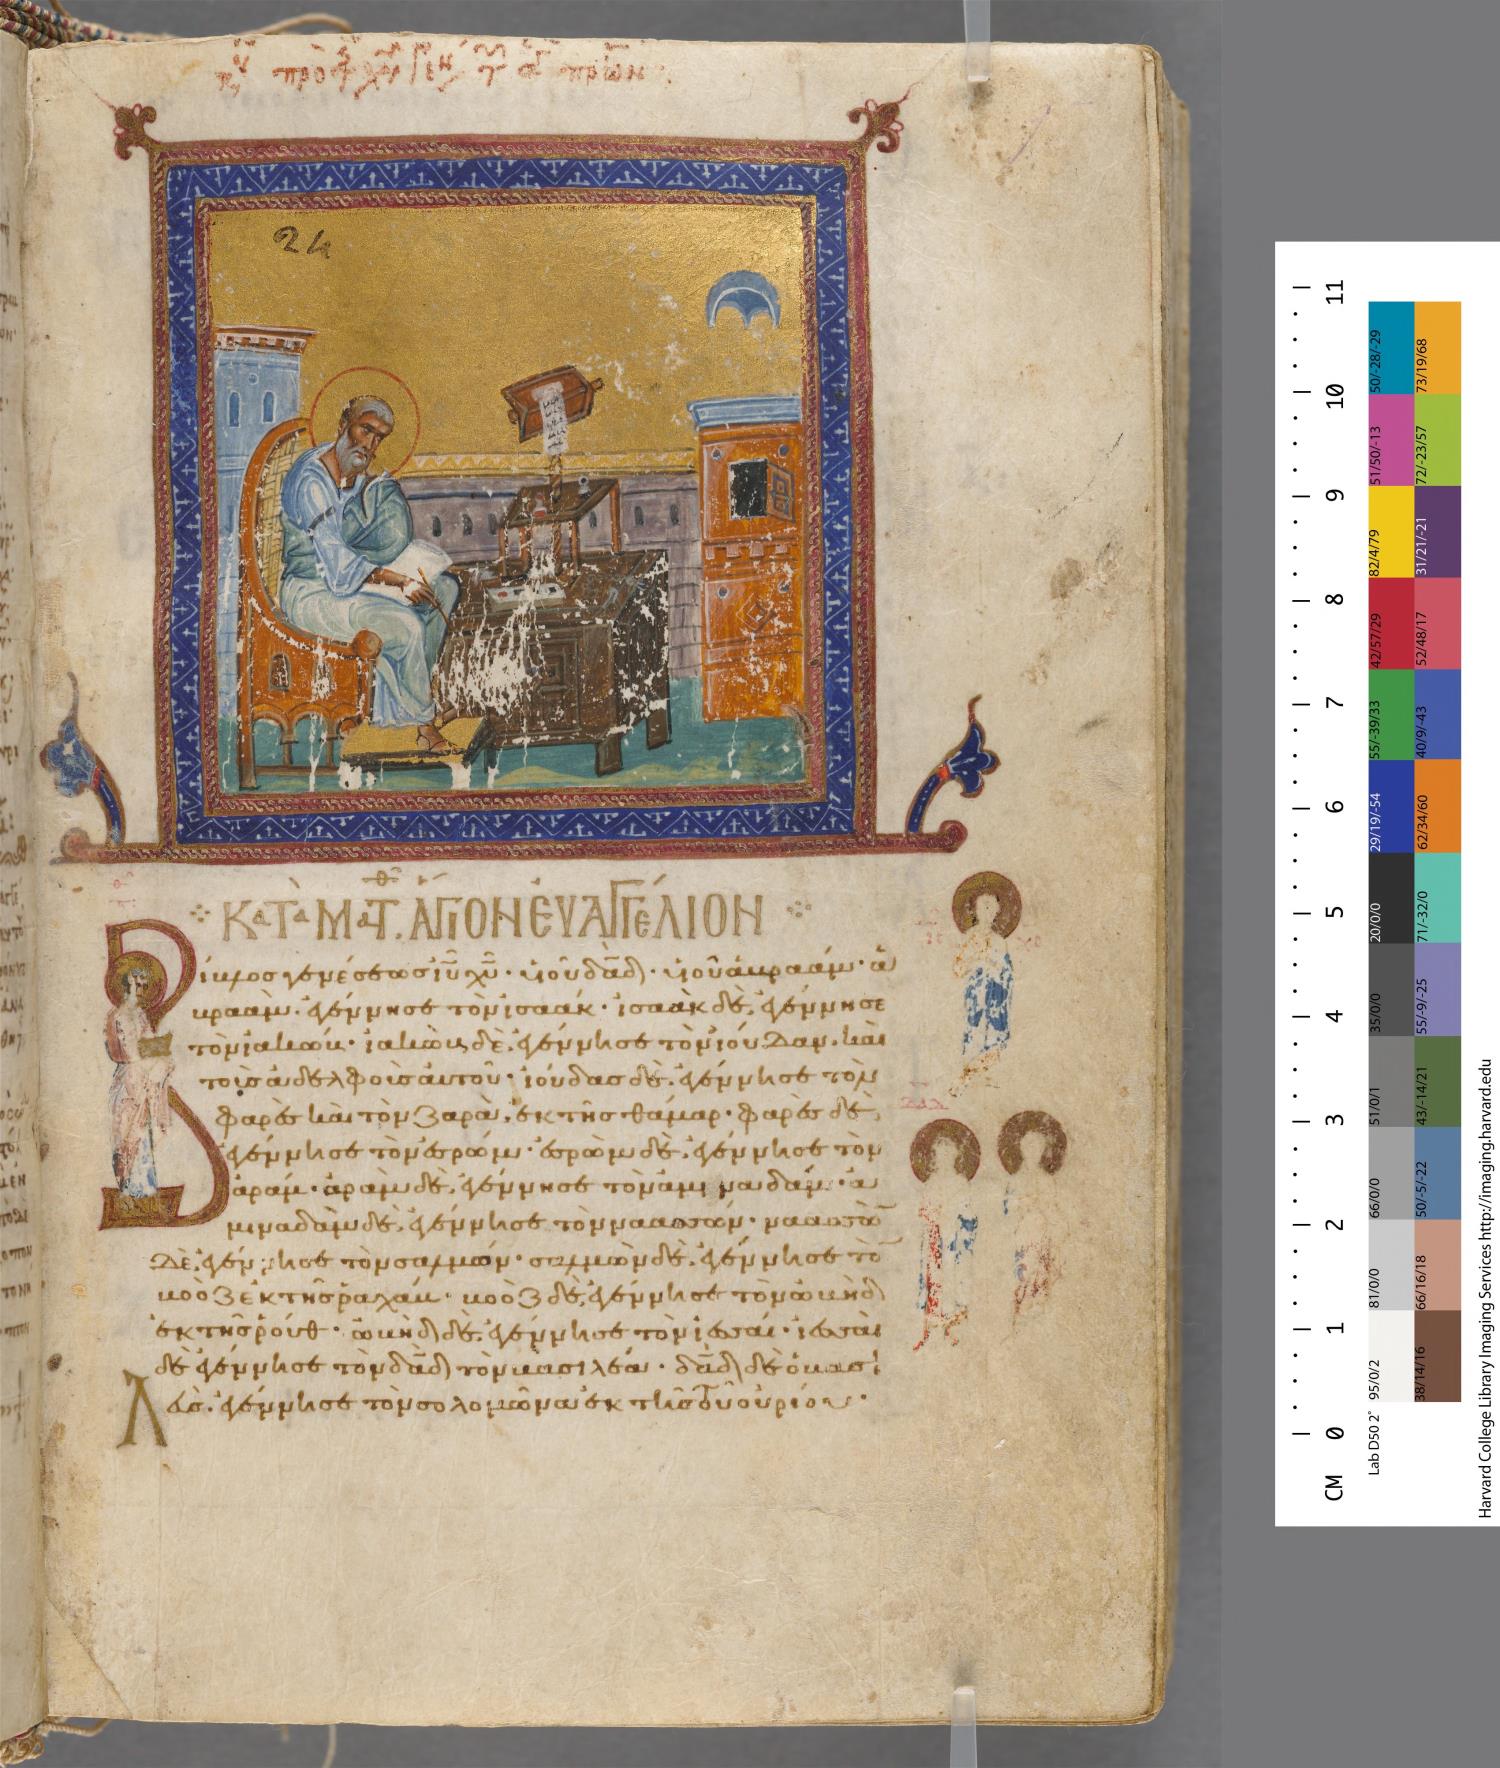 24
ΚΑΤΑ ΜΑΤΘ. ἍΓΙΟΝ ΕΥΑΓΓΕΛΙΟΝ
Βίβλος γενέσεως ιῦ χῦ· υἱοῦ δᾱδ· υἱοῦ ἀβραάμ· ἀ
βραὰμ. ἐγέννησε τὸν ἰσαάκ· ἰσαὰκ δὲ, ἐγέννησε
τὸν ἰακώβ· ἰακὼβ δὲ. ἐγέννησε τὸν ἰούδαν. καὶ
τοὺς ἀδελφοὺς ἀυτοῦ· ἰούδας δὲ. ἐγέννησε τὸν
φαρὲς καὶ τὸν ζαρὰ, ἐκ τῆς θάμαρ· φαρὲς δὲ,
ἐγέννησε τὸν ἐσρώμ· ἐσρὼμ δὲ, ἐγέννησε τὸν
ἀράμ· ἀρὰμ δὲ, ἐγέννησε τὸν ἀμιναδάμ· ἀ
μιναδὰμ δὲ, ἐγέννησε τὸν ναασσών· ναασσὼ
δὲ, ἐγέννησε τὸν σαλμών· σαλμὼν δὲ, ἐγέννησε τὸ
βοὸζ ἐκ τῆς ῥαχάβ· βοὸζ δὲ, ἐγέννησε τὸν ὠβὴδ
ἐκ τῆς ῥούθ· ὠβὴδ δὲ. ἐγέννησε τὸν ἰεσσαί· ἰεσσαὶ
δὲ ἐγέννησε τὸν δᾱδ τὸν βασιλέα· δᾱδ δὲ ὁ βασι
λεὺς. ἐγέννησε τὸν σολομῶνα ἐκ τῆς τοῦ οὐρίου·
CM 0 1 2 3 4 5 6 7 8 9 10 11
Lab D50 2° 95/0/2 81/0/0 66/0/0 51/0/1 35/0/0 20/0/0 29/19/-54 55/-39/33 42/57/29 82/4/79 51/50/-13 50/-28/-29
38/14/16 66/16/18 50/-5/-22 43/-14/21 55/-9/-25 71/-32/0 62/34/60 40/9/-43 52/48/17 31/21/-21 72/-23/57 73/19/68
Harvard College Library Imaging Services http://imaging.harvard.edu